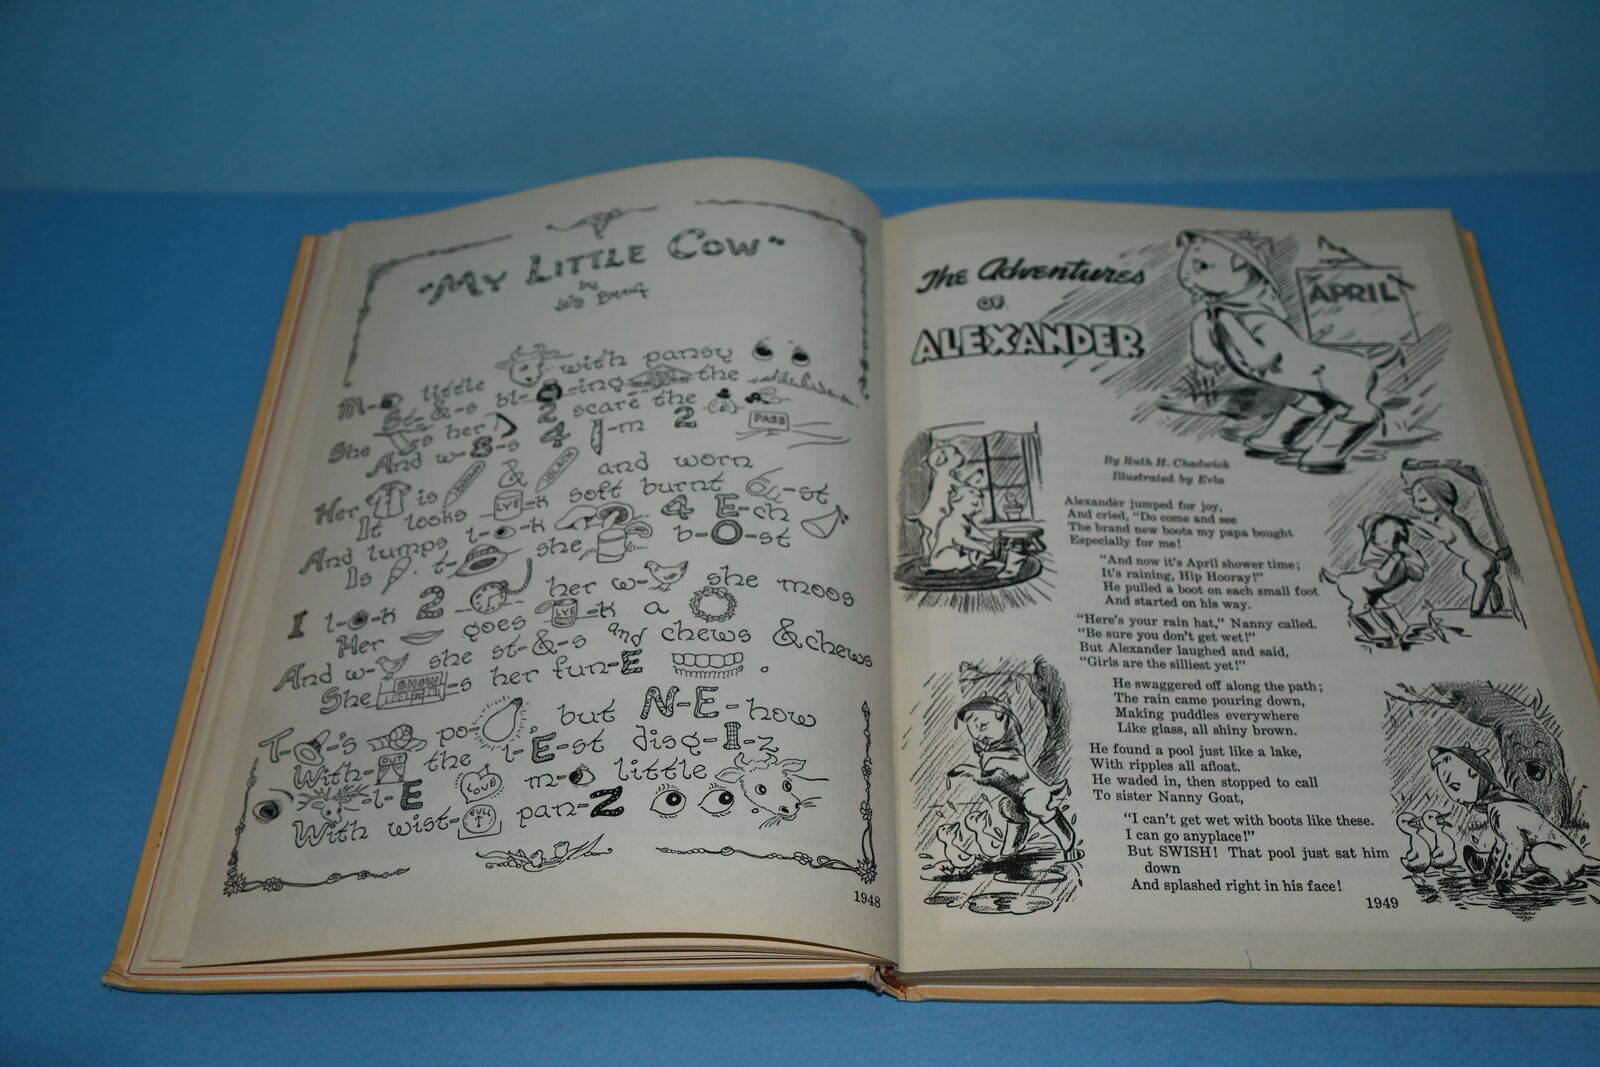 "MY LITTLE COW"
by
M- little with pansy
St-&-s bl- -ing the
She -s her 2 scare the
And w-8-s 4 -m 2 PASS
Her is BROWN & BLACK and worn
It looks LYE -k soft burnt -st
And lumps l- -k 4 E-ch
Is t- she b-O-st
I l- -k 2 her w- she moos
Her goes LYE -k a
And w- she st-&-s and chews & chews
She SHOW -s her fun-E .
T- -'s po- , but N-E-how
With- OUT the l-E-st disg-I-z
-l-E LOVE m- little
With wist- FULL pan-Z
1948
The Adventures
OF
ALEXANDER
APRIL
By Ruth H. Chadwick
Illustrated by Evla
Alexander jumped for joy,
And cried, "Do come and see
The brand new boots my papa bought
Especially for me!
"And now it's April shower time;
It's raining, Hip Hooray!"
He pulled a boot on each small foot
And started on his way.
"Here's your rain hat," Nanny called.
"Be sure you don't get wet!"
But Alexander laughed and said,
"Girls are the silliest yet!"
He swaggered off along the path;
The rain came pouring down,
Making puddles everywhere
Like glass, all shiny brown.
He found a pool just like a lake,
With ripples all afloat.
He waded in, then stopped to call
To sister Nanny Goat,
"I can't get wet with boots like these.
I can go anyplace!"
But SWISH! That pool just sat him
down
And splashed right in his face!
1949